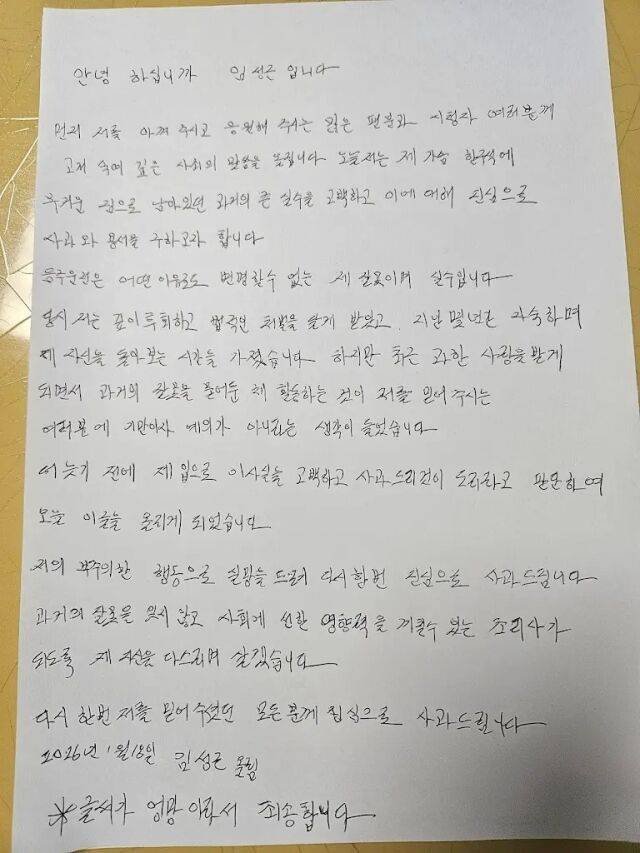 안녕 하십니까 임성근 입니다
먼저 저를 아껴 주시고 응원해 주시는 많은 팬분과 시청자 여러분께
고개 숙여 깊은 사죄의 말씀을 올립니다 오늘 저는 제 가슴 한구석에
무거운 짐으로 남아있던 과거의 큰 실수를 고백하고 이에 대해 진심으로
사과와 용서를 구하고자 합니다
음주운전은 어떤 이유로도 변명할수 없는 제 잘못이며 실수입니다
당시 저는 깊이 후회하고 법적인 처벌을 달게 받았고, 지난 몇년간 자숙하며
제 자신을 돌아보는 시간을 가졌습니다 하지만 최근 과한 사랑을 받게
되면서 과거의 잘못을 묻어둔 채 활동하는 것이 저를 믿어 주시는
여러분에 기만이자 예의가 아니라는 생각이 들었습니다
더 늦기 전에 제 입으로 이사실을 고백하고 사과드리는것이 도리라고 판단하여
오늘 이글을 올리게 되었습니다
저의 부주의한 행동으로 실망을 드려 다시한번 진심으로 사과드립니다
과거의 잘못을 잊지 않고 사회에 선한 영향력을 끼칠수 있는 조리사가
되도록 제 자신을 다스리며 살겠습니다
다시 한번 저를 믿어 주셨던 모든 분께 진심으로 사과드립니다
2026년 1월 18일 임성근 올림
※글씨가 엉망 이라서 죄송합니다